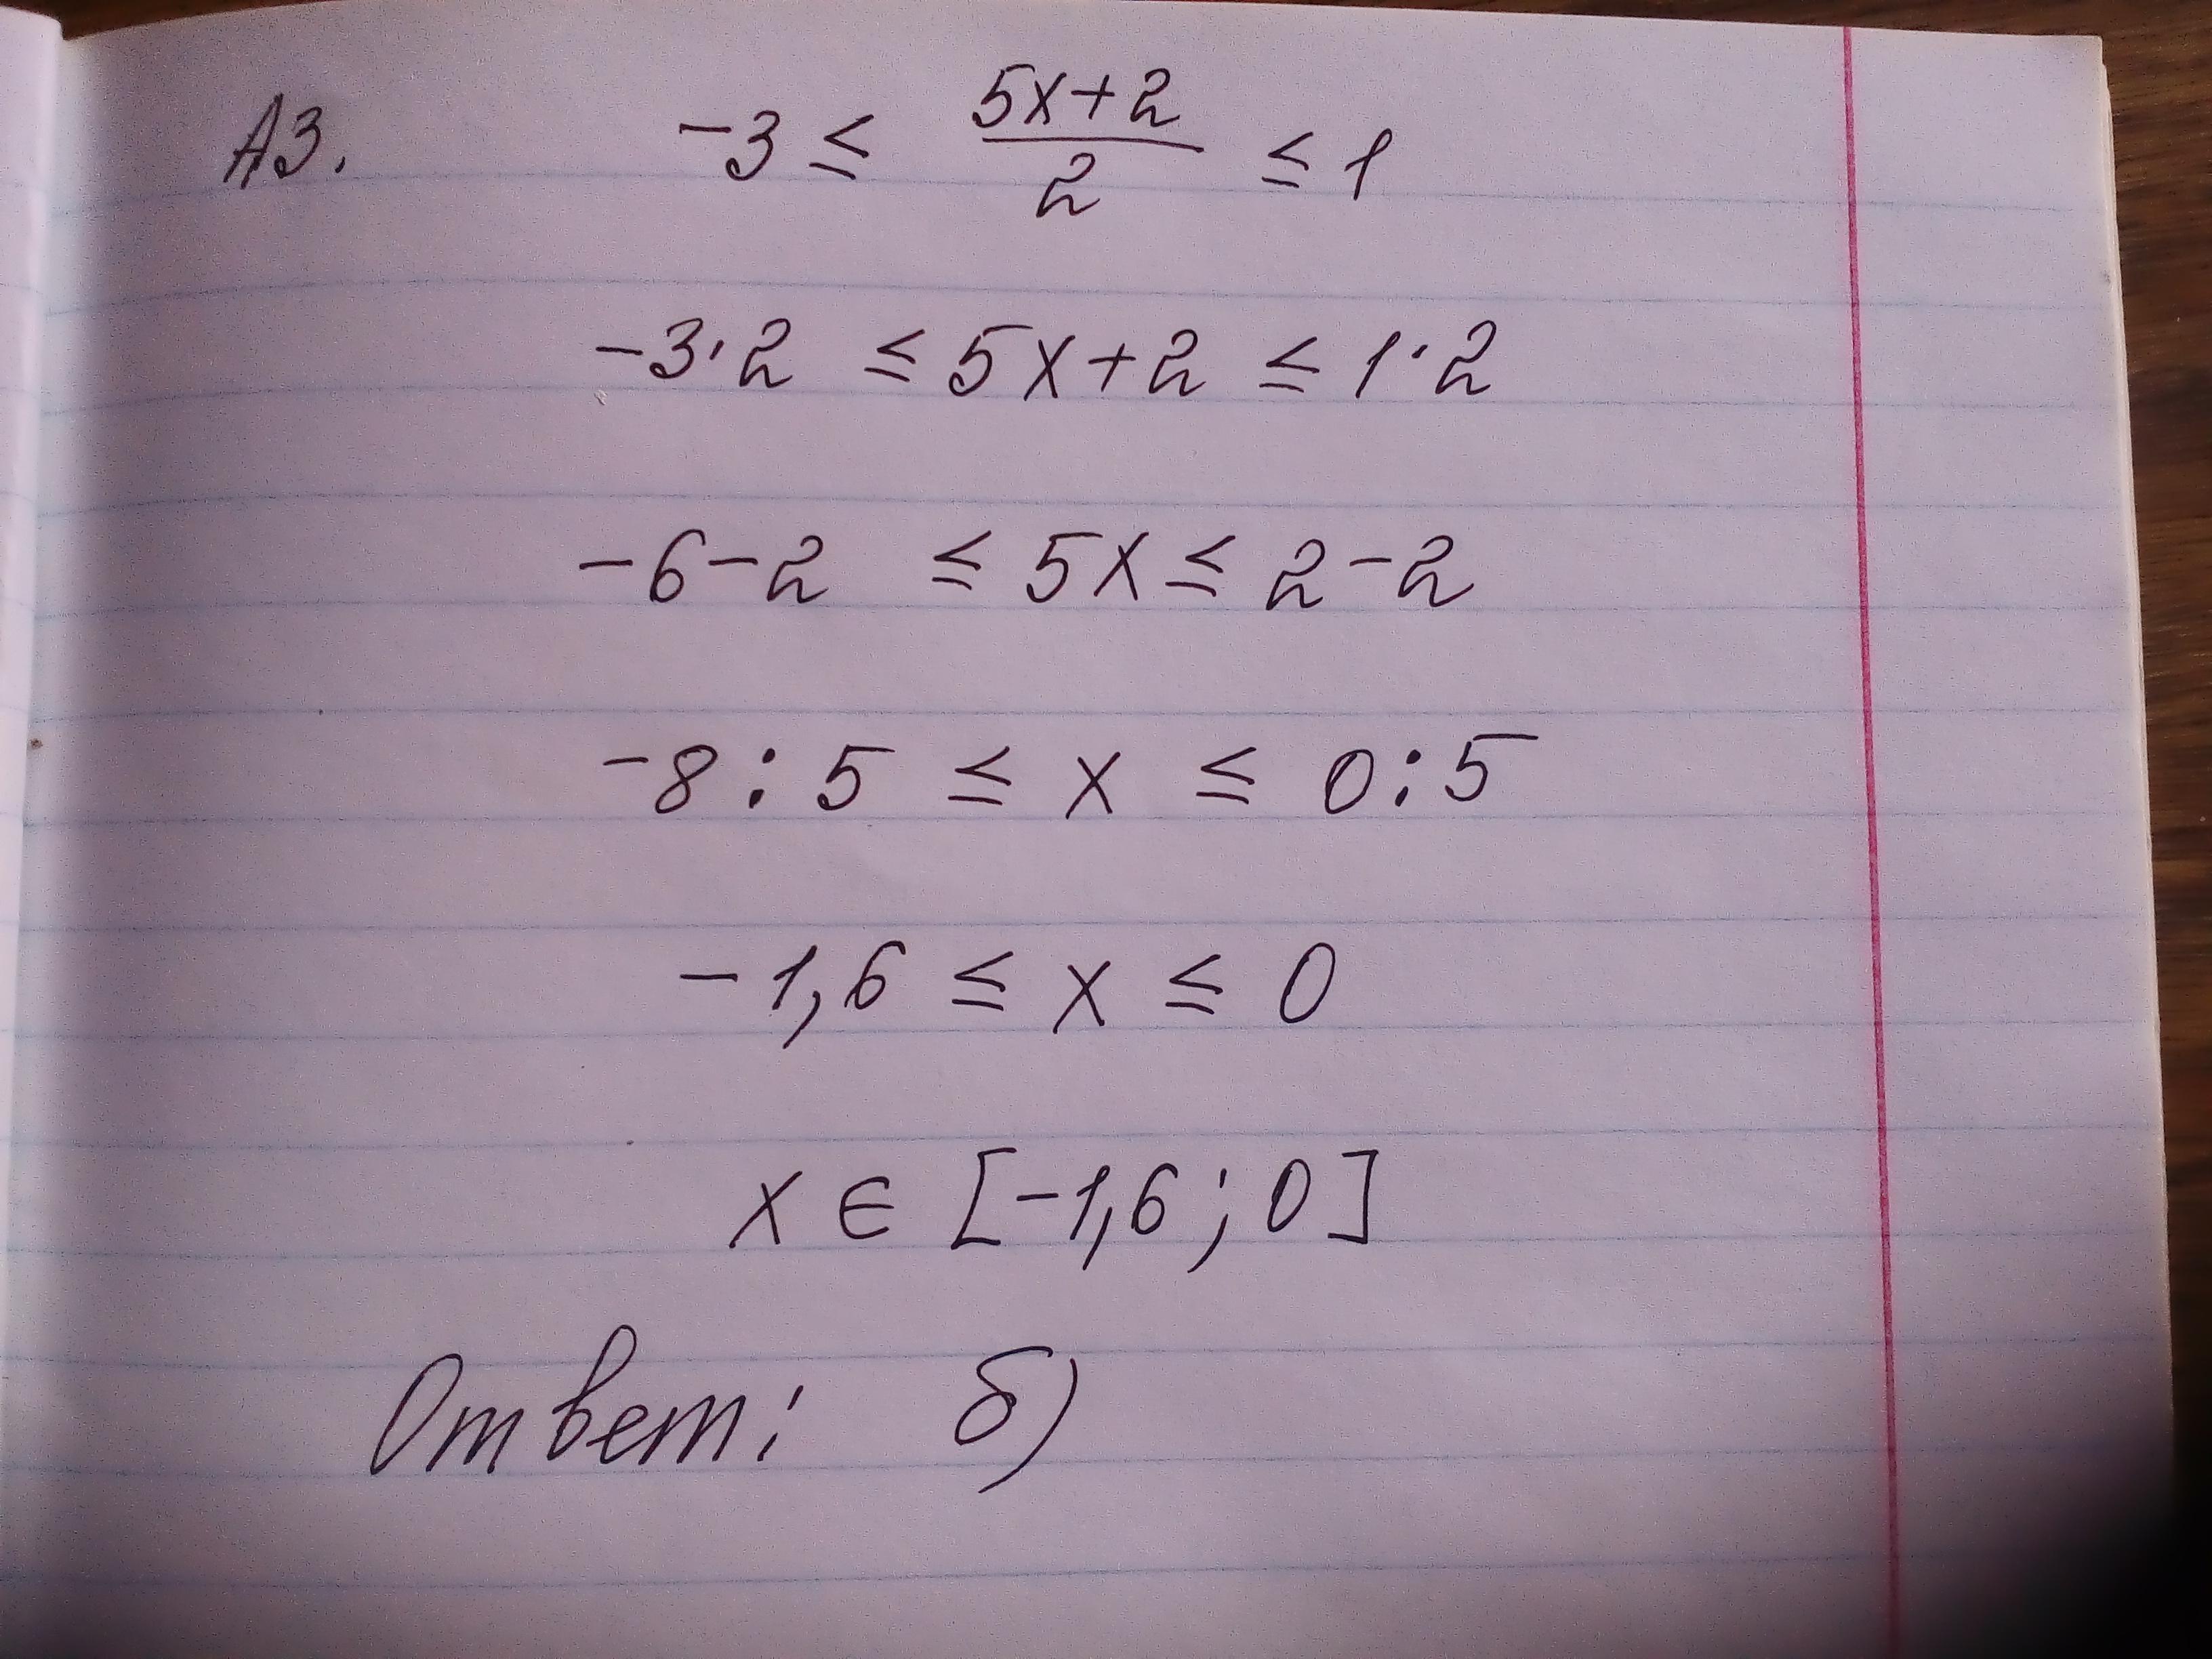 А3. -3 ≤ (5x+2)/2 ≤ 1
-3·2 ≤ 5x+2 ≤ 1·2
-6-2 ≤ 5x ≤ 2-2
-8:5 ≤ x ≤ 0:5
-1,6 ≤ x ≤ 0
x ∈ [-1,6; 0]
Ответ: б)